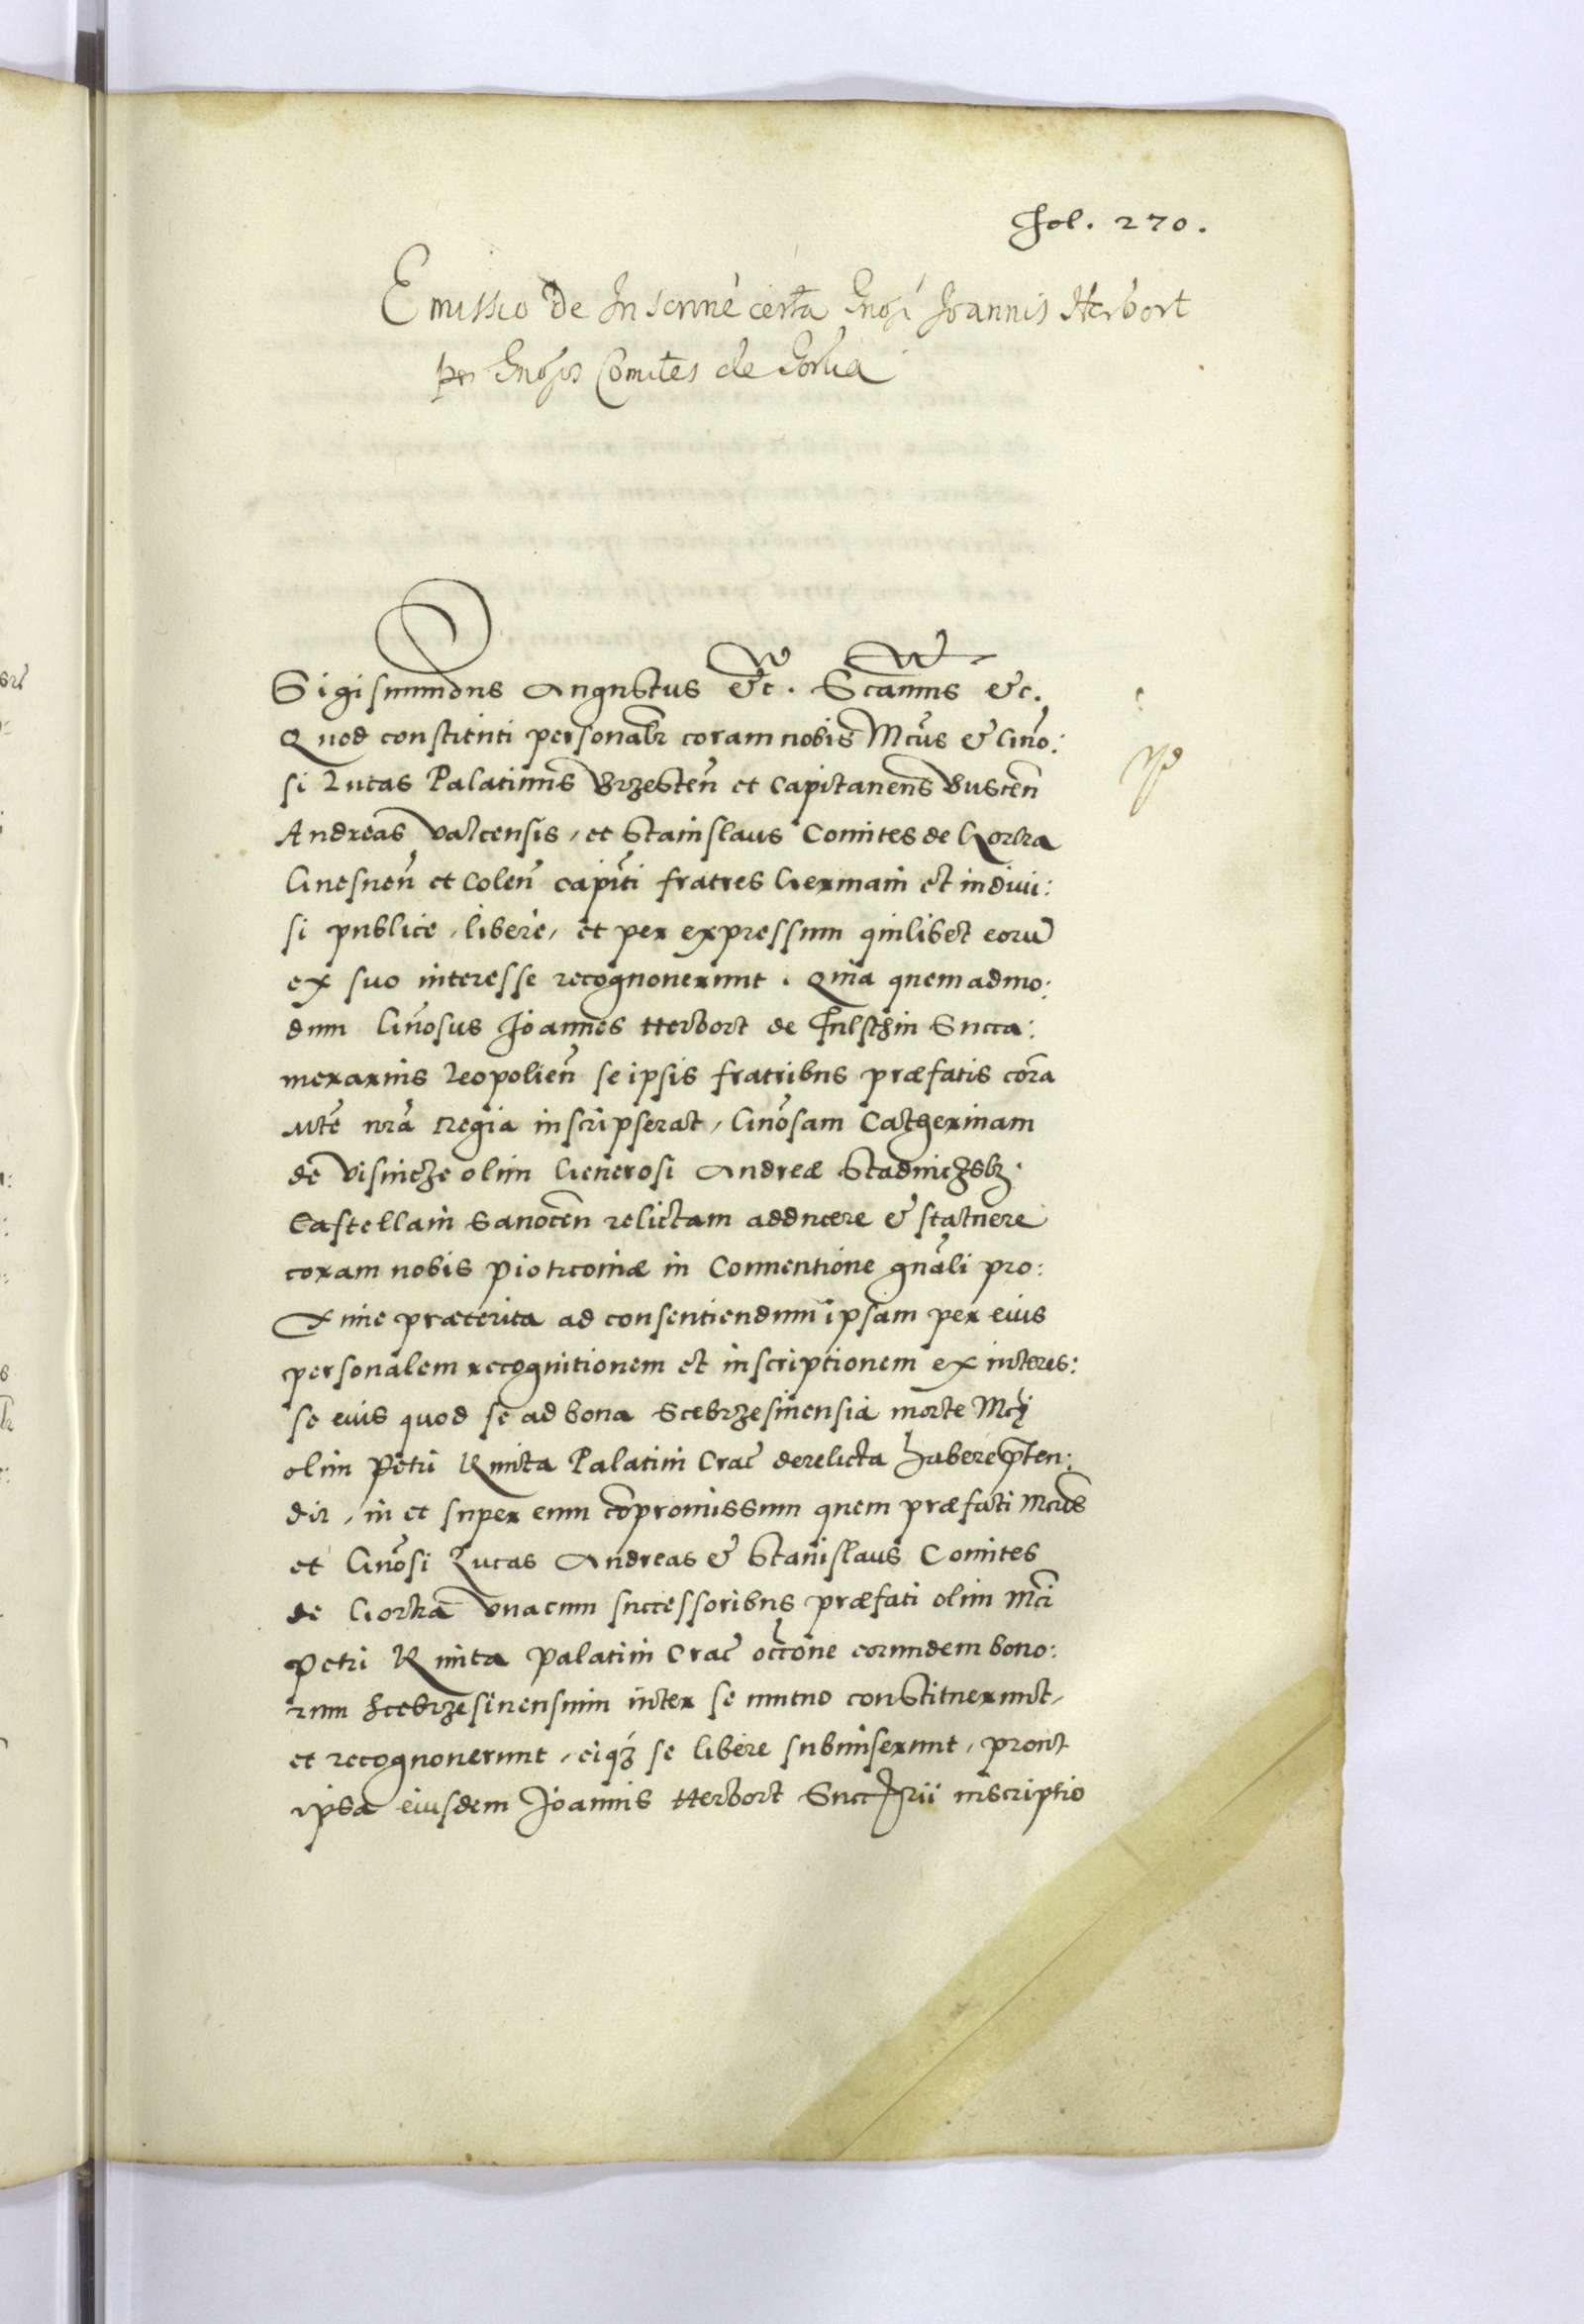 Fol. 270.
Emissio de Inscrine certa Gnosi Joannis Herbort
per Gnosos Comites de Gorka
Sigismundus Augustus &c. Scimus &c.
Quod constituti personalr coram nobis Mcus & Gno:
si Lucas Palatinus Brzesten et Capitaneus Buscen
Andreas Valcensis, et Stanislaus Comites de Gorka
Gnesnen et Colen capiti fratres Germani et indiui:
si publice, libere, et per expressum quilibet eoru
ex suo interesse recognouerunt. Quia quemadmo:
dum Gnosus Joannes Herbort de Fulsthin Succa:
merarius Leopolien se ipsis fratribus præfatis cora
Mte nra Regia inscripserat, Gnosam Catherinam
de Visnicze olim Generosi Andreæ Stadniczsky
Castellani Sanocen relictam adducere & statuere
coram nobis Piotrcouiæ in Conuentione gnali pro:
xime præterita ad consentiendum ipsam per eius
personalem recognitionem et inscriptionem ex interes:
se eius quod se ad bona Scebrzesinensia morte Mci
olim Petri Kmita Palatini Crac derelicta habere pten:
dit, in et super eum compromissum quem præfati Mcus
et Gnosi Lucas Andreas & Stanislaus Comites
de Gorka vnacum successoribus præfati olim Mci
Petri Kmita Palatini Crac occone eorundem bono:
rum Scebrzesinensium inter se mutuo constituerunt,
et recognouerunt, eiq3 se libere submiserunt, prout
ipsa eiusdem Joannis Herbort Succrii inscriptio